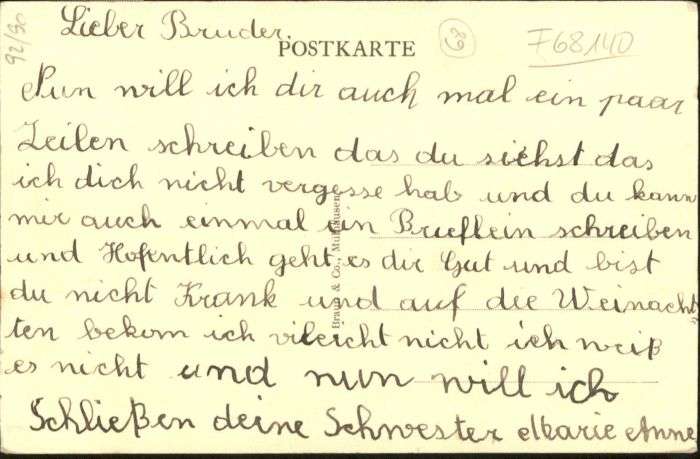 Lieber Bruder.
POSTKARTE
89
F68140
92/90
Nun will ich dir auch mal ein paar
Zeilen schreiben das du siehst das
ich dich nicht vergesse hab und du kann
mir auch einmal ein Brieflein schreiben
und Hofentlich geht es dir Gut und bist
du nicht Krank und auf die Weinacht
ten bekom ich vileicht nicht ich weiß
es nicht und nun will ich
Schließen deine Schwester Marie Anne
Braun & Co., Mulhausen